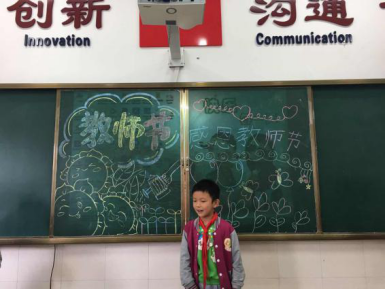 创新
Innovation
沟通
Communication
教师节
教师节